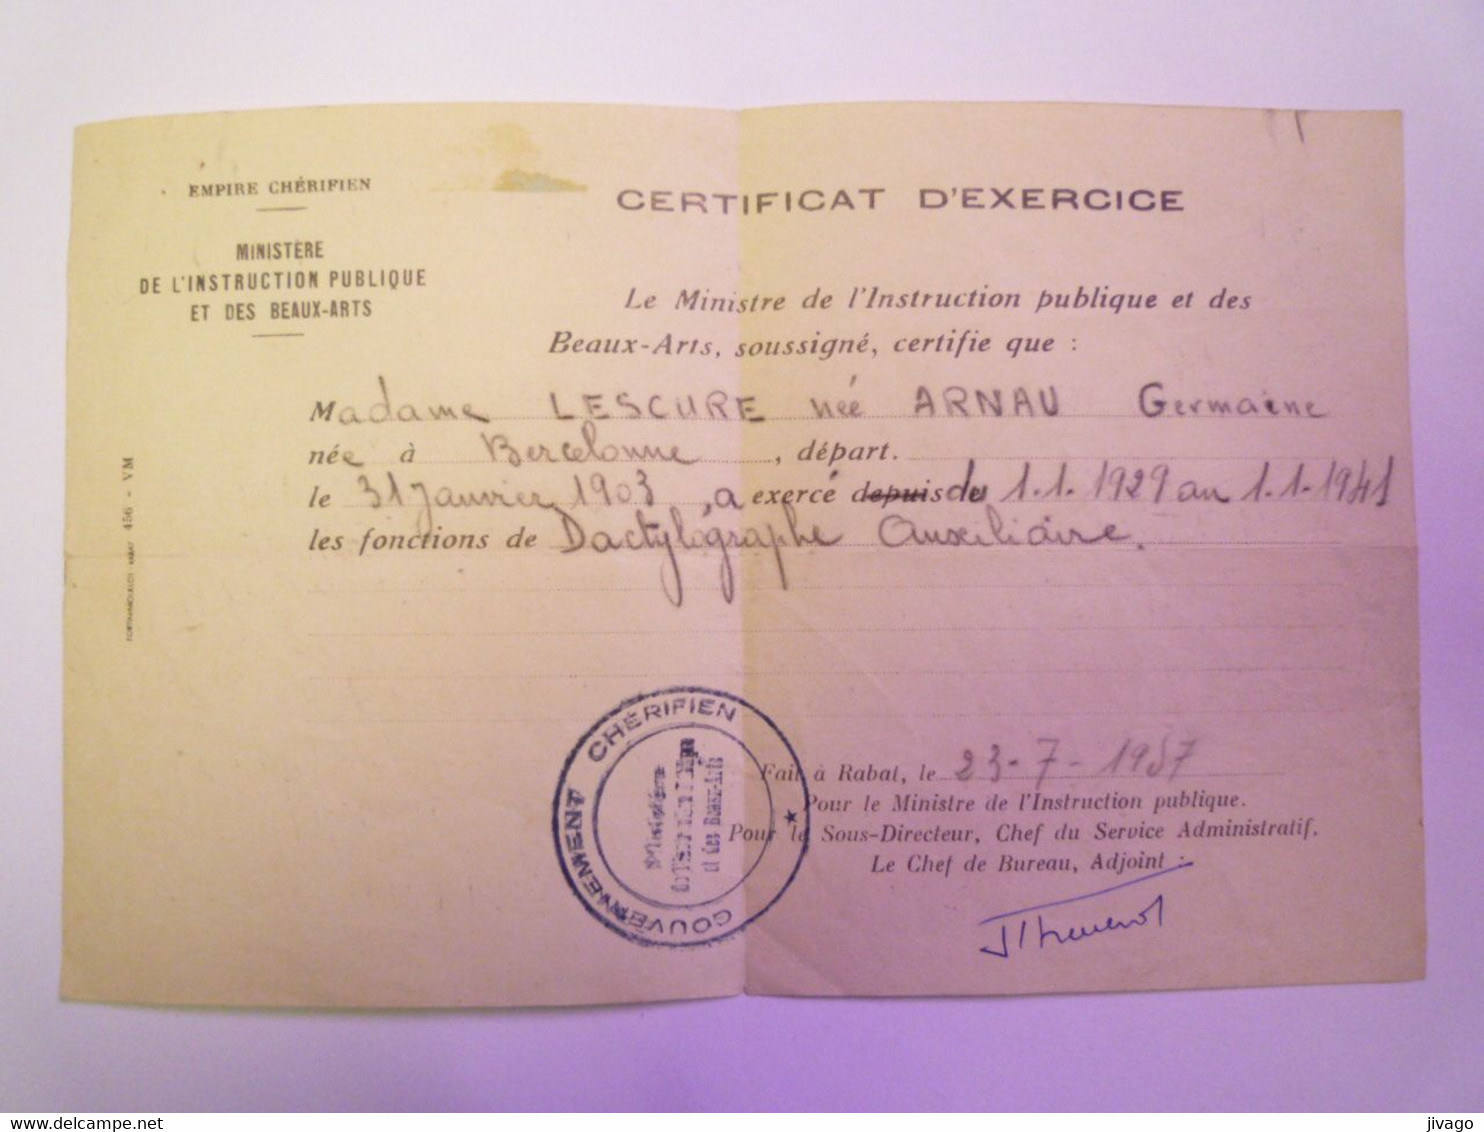 EMPIRE CHÉRIFIEN
MINISTÈRE
DE L'INSTRUCTION PUBLIQUE
ET DES BEAUX-ARTS
CERTIFICAT D'EXERCICE
Le Ministre de l'Instruction publique et des
Beaux-Arts, soussigné, certifie que :
Madame LESCURE née ARNAU Germaine
née à Bercelonne, départ.
le 31 Janvier 1903, a exercé depuis du 1.1.1929 au 1.1.1941
les fonctions de Dactylographe Auxiliaire.
456 - VM
GOUVERNEMENT CHÉRIFIEN
Ministère
et des Beaux-Arts
Fait à Rabat, le 23-7-1957
Pour le Ministre de l'Instruction publique.
Pour le Sous-Directeur, Chef du Service Administratif.
Le Chef de Bureau, Adjoint :
delcampe.net
jivago